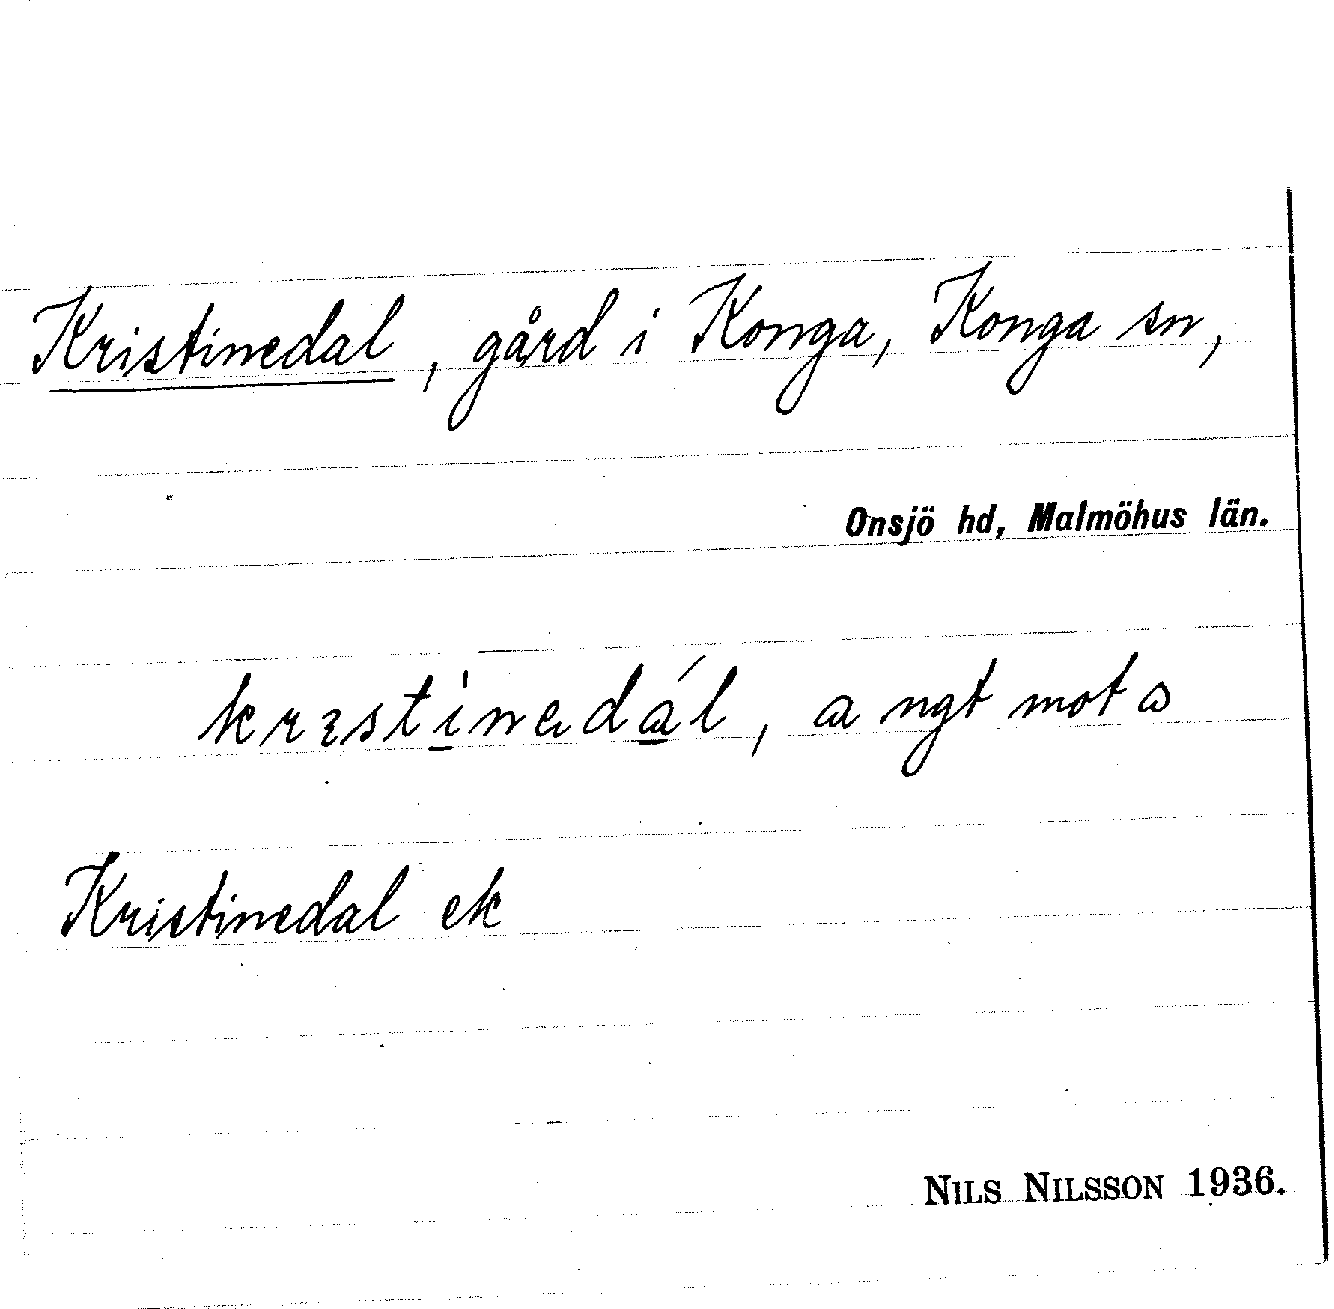 Kristinedal, gård i Konga, Konga sn,
Onsjö hd, Malmöhus län.
krıstinɐdál, ɑ ngt mot ɔ
Kristinedal ek
NILS NILSSON 1936.